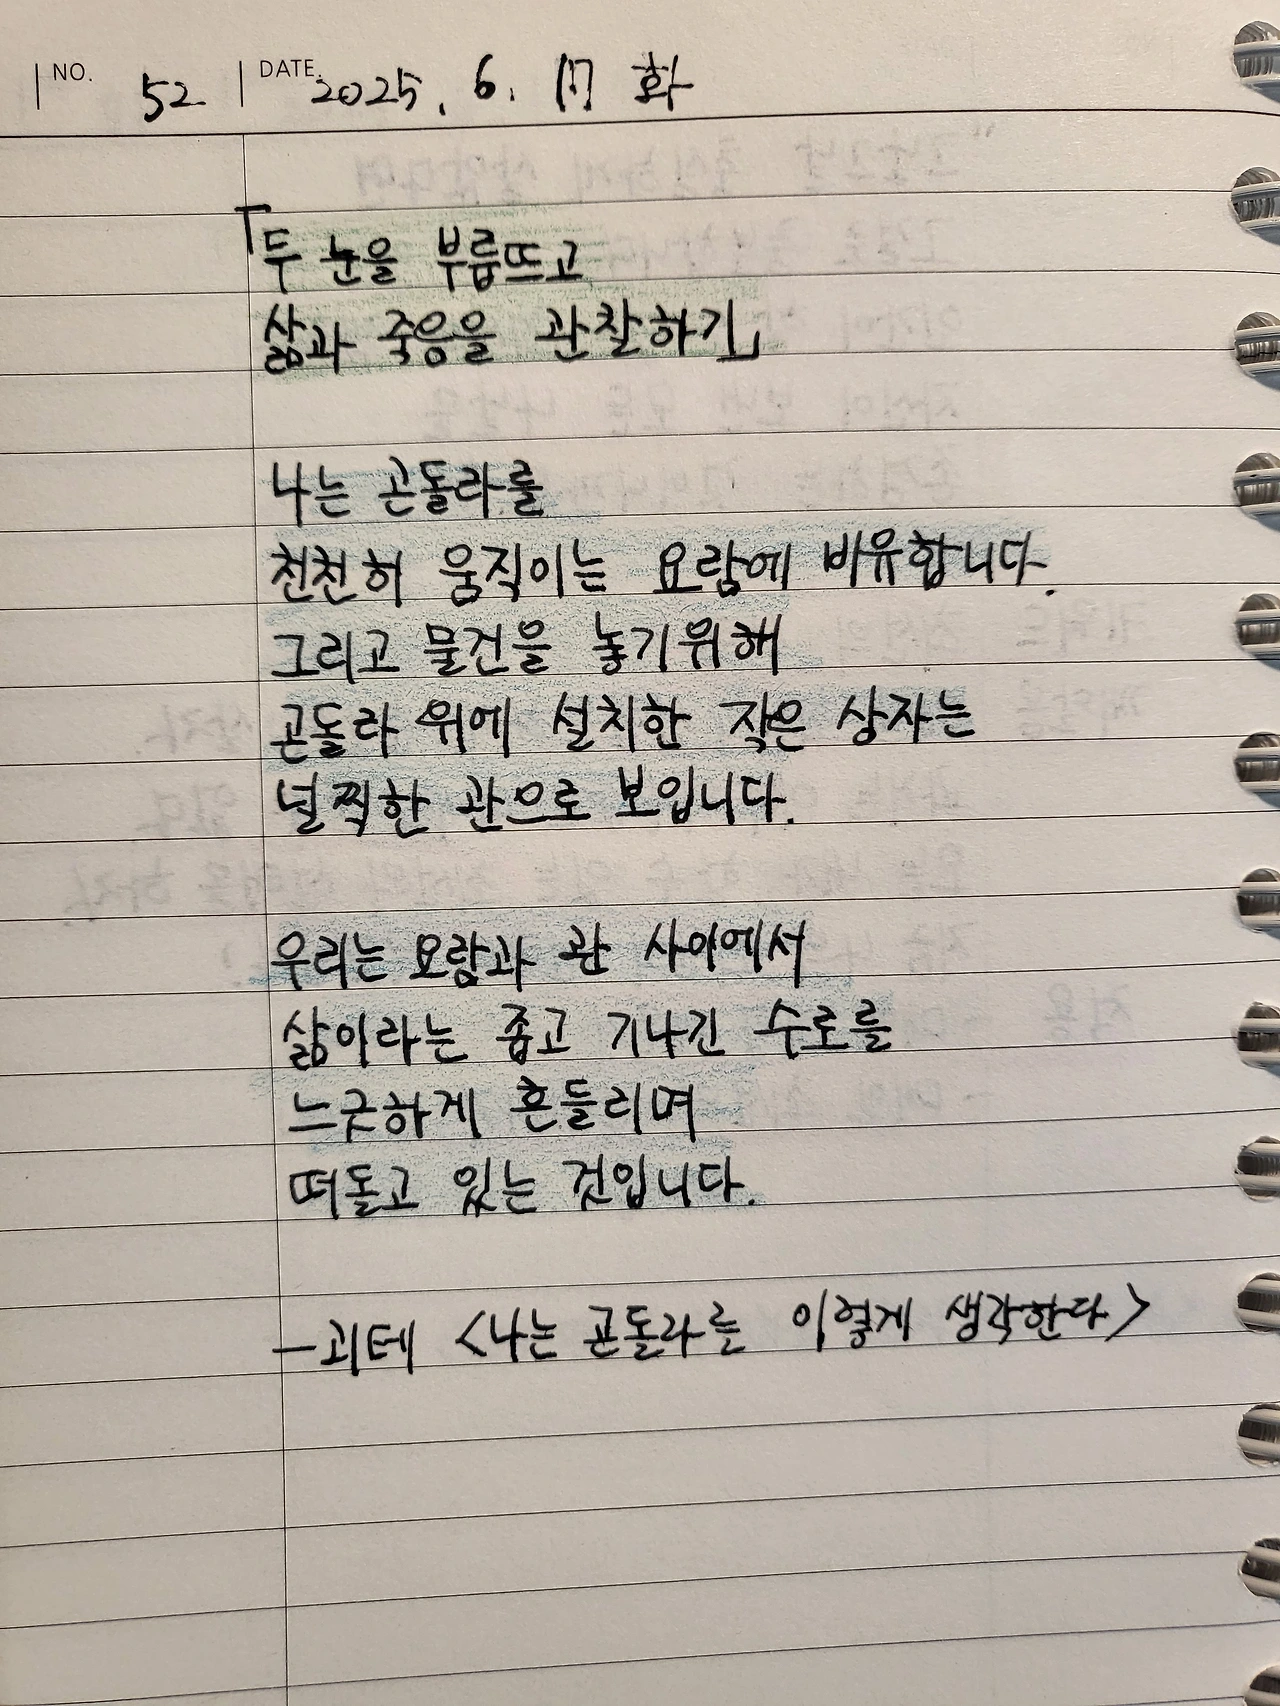 NO. 52 DATE. 2025. 6. 17 화
「두 눈을 부릅뜨고
삶과 죽음을 관찰하기」
나는 곤돌라를
천천히 움직이는 요람에 비유합니다.
그리고 물건을 놓기위해
곤돌라 위에 설치한 작은 상자는
널찍한 관으로 보입니다.
우리는 요람과 관 사이에서
삶이라는 좁고 기나긴 수로를
느긋하게 흔들리며
떠돌고 있는 것입니다.
-괴테 <나는 곤돌라를 이렇게 생각한다>